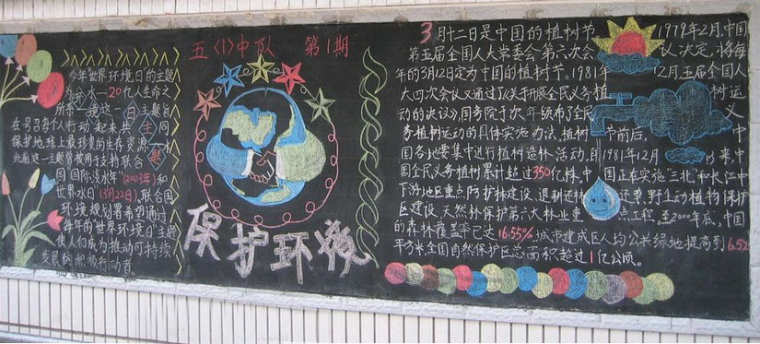 今年世界环境日的主题
水—20亿人生命之
所
在号召每个人行动起来共同
保护地球上最珍贵的生存资源—水
此前这一主题曾被用于支持联合
国国际淡水年(2003年)和
世界水日(3月22日),联合国
环境规划署希望通过
每年的世界环境日主题
使人们成为推动可持续
发展的积极行动者
五〈1〉中队 第1期
保护环境
3月十二日是中国的植树节 1979年2月,中国
第五届全国人大常委会第六次会 议决定,将每
年的3月12日定为中国的植树节。1981年 12月五届全国人
大四次会议又通过了《关于开展全民义务 植树运
动的决议》,国务院于次年颁布了全民 义
务植树运动的具体实施办法,植树节前后, 中
国各地要集中进行植树造林活动,年1981年12月 以来,中
国全民义务植树累计超过350亿株,中国正在实施三北和长江中
下游地区重点防护林建设、退耕还林 还草、野生动植物保护
区建设、天然林保护等六大林业重 点工程,至2000年底,中国
的森林覆盖率已达16.55%城市建成区人均公共绿地提高到6.52
平方米,全国自然保护区总面积超过1亿公顷。